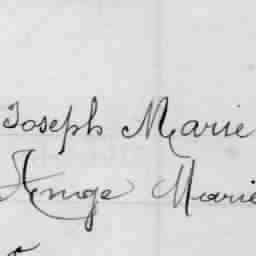 Joseph Marie
Ange Marie